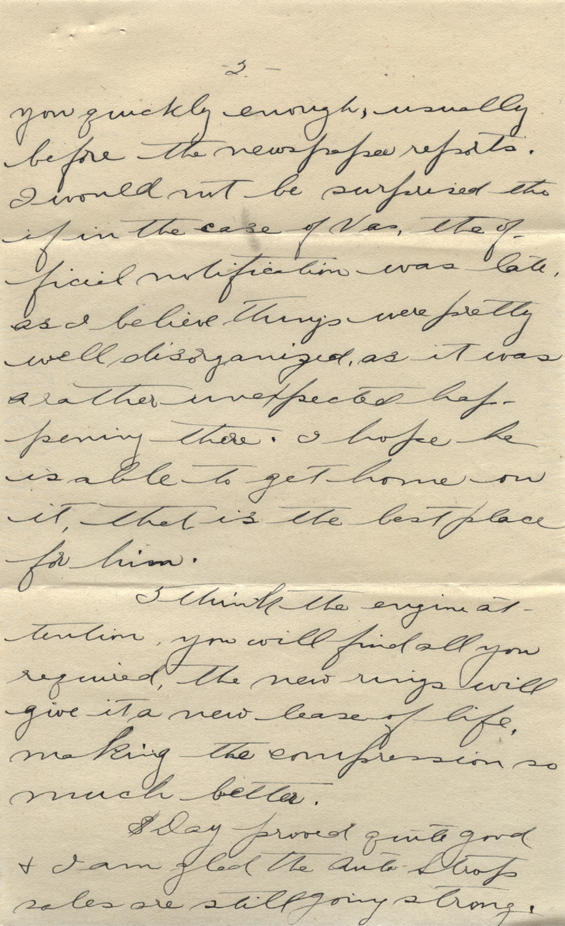 - 2 -
you quickly enough, usually
before the newspaper reports.
I would not be surprised tho
if in the case of Vas, the of-
ficial notification was late,
as I believe things were pretty
well disorganized, as it was
a rather unexpected hap-
pening there. I hope he
is able to get home on
it, that is the best place
for him.
I think the engine at-
tention, you will find all you
required, the new rings will
give it a new lease of life,
making the compression so
much better.
$ Day proved quite good
& I am glad the Auto Strop
sales are still going strong.